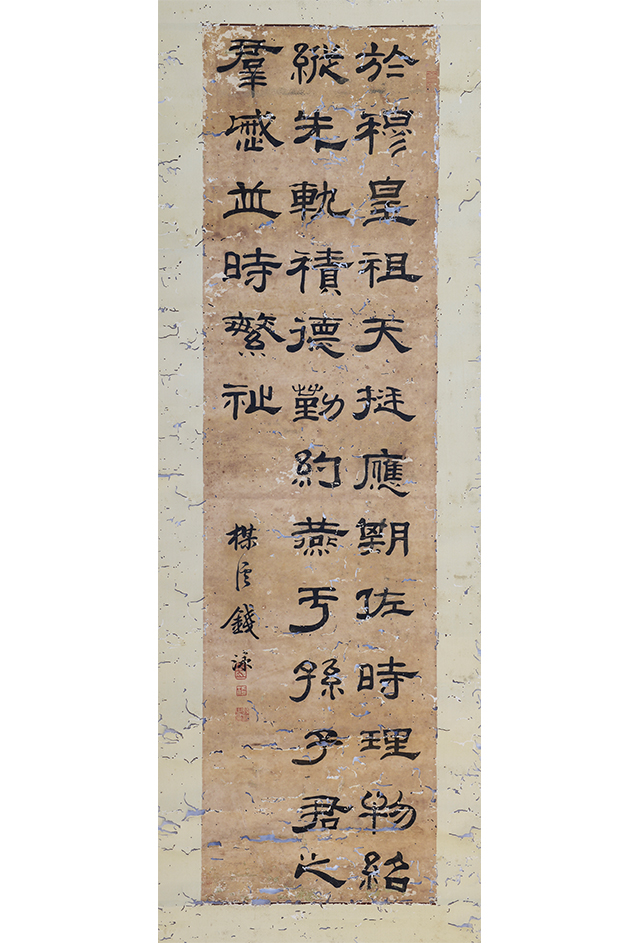 於穆皇祖天挺應期佐時理物紹
縱先軌積德勤約燕于孫子君之
羣慼並時繁祉
楳溪錢泳